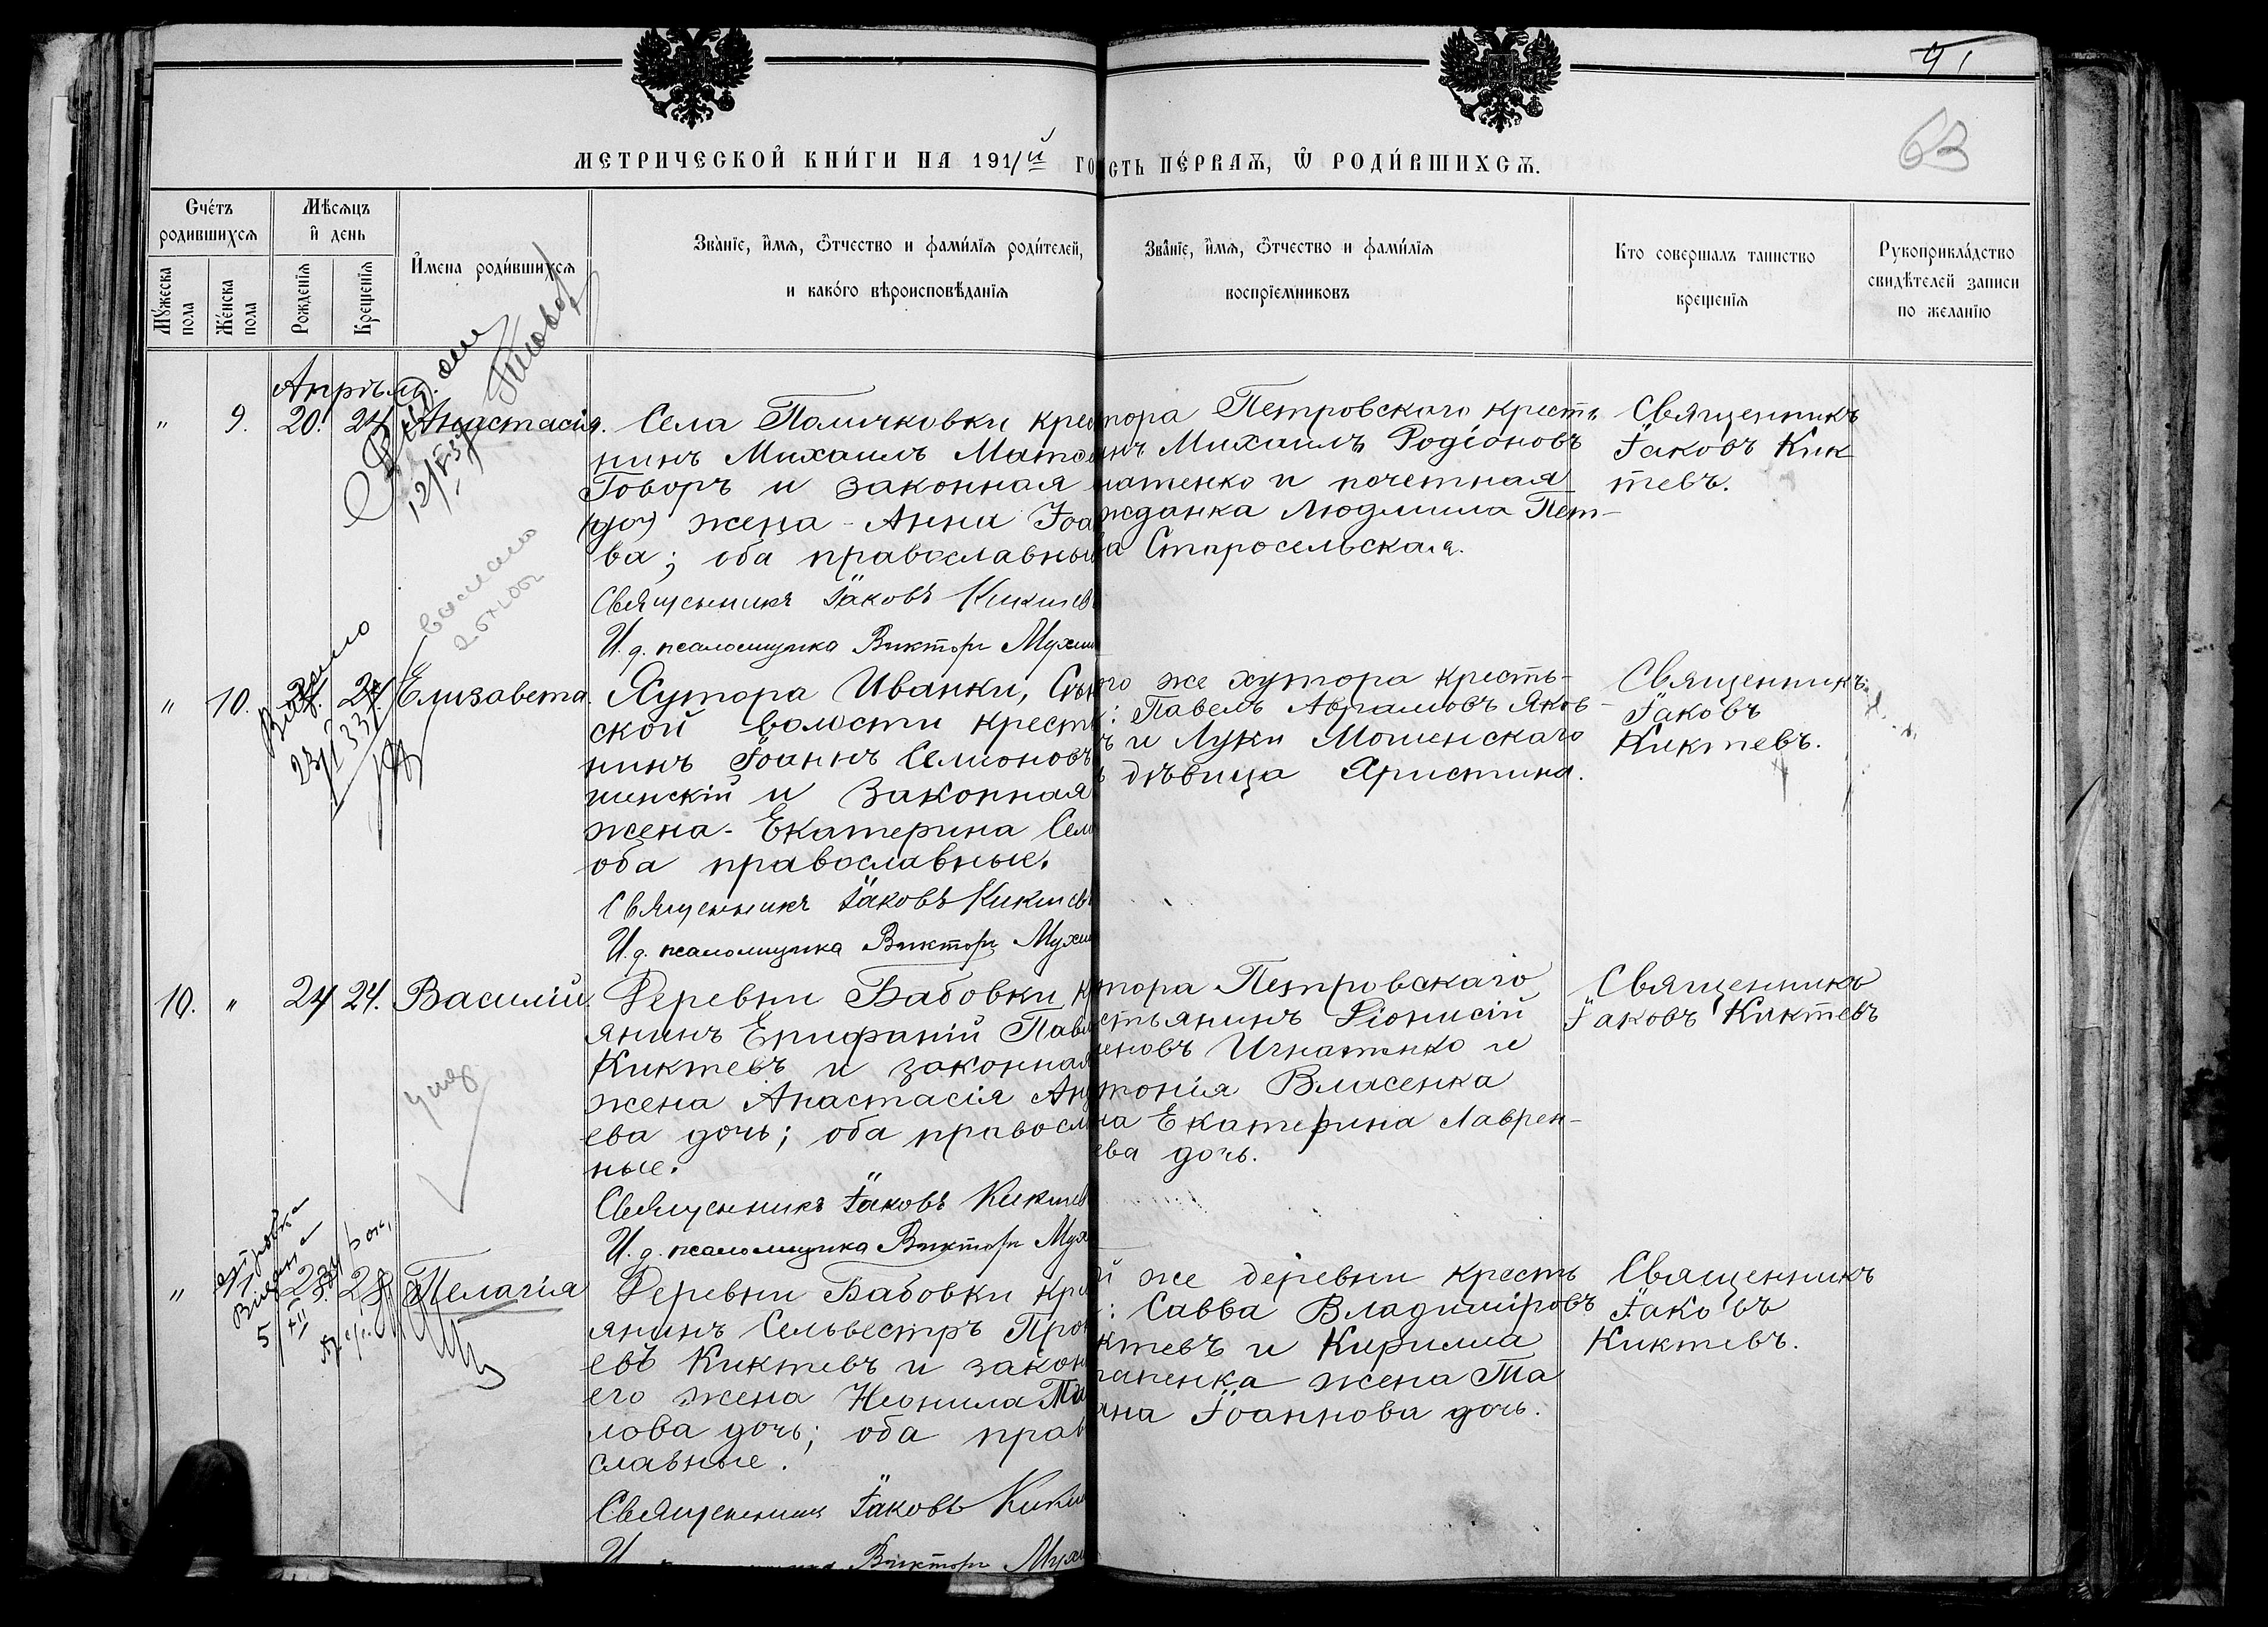 91
63
МЕТРИЧЕСКОЙ КНИ́ГИ НА 1911й ГО
СТЬ ПЕ́РВАѦ, Ѿ РОДИ́ВШИХСѦ.
Сче́тъ родившихсѧ
Мѣсѧцъ и день
Му́жеска пола
Же́нска пола
Рожденїѧ
Крещенїѧ
Имена роди́вшихсѧ
Зва́нїе, и́мѧ, ѻ́тчество и фами́лїѧ роди́телей,
и како́го вѣроисповѣ́данїѧ
Зва́нїе, и́мѧ, ѻ́тчество и фами́лїѧ
воспрїе́мниковъ
Кто совершалъ таинство
крещенїѧ
Рукоприкла́дство
свидѣ́телей записи
по желанїю
Апрѣль.
" 9. 20. 24 Анастасія.
Села Поличковки кре
нинъ Михаилъ
Говоръ и законная
жена - Анна Іоа
ва; оба православны
Священникъ Іаковъ Киктев
И. д. псаломщика Викторъ Мухин
тора Петровскаго кресть
нъ Михаилъ Родіоновъ
натенко и почетная
жданка Людмила Пет-
ва Старосельская.
Священникъ
Іаковъ Кик
тевъ.
" 10. 24. Елизавета.
Хутора Иванки,
ской волости крест
нинъ Іоаннъ Семіоновъ
шенскій и законная
жена - Екатерина Сем
оба православные.
Священникъ Іаковъ Киктевъ
И. д. псаломщика Викторъ Мухин
го же хутора кресть-
: Павелъ Авраамовъ Яков-
ъ и Луки Мошенскаго
ь дѣвица Христина.
Священникъ
Іаковъ
Киктевъ.
10. " 24 24. Василій.
Деревни Бабовки, к
янинъ Епифаній Павл
Киктевъ и законная
жена Анастасія Ан
ева дочь; оба правосл
ные.
Священникъ Іаковъ Киктев
И. д. псаломщика Викторъ Мух
тора Петровскаго
стьянинъ Діонисій
еновъ Игнатенко и
тонія Власенка
на Екатерина Лаврен-
ева дочь.
Священникъ
Іаковъ Киктевъ
" 11 28 Пелагія
Деревни Бабовки кре
янинъ Сельвестръ Прок
евъ Киктевъ и закон
его жена Неонила
лова дочь; оба прав
славные.
Священникъ Іаковъ Кикт
Викторъ Мухи
й же деревни кресть
: Савва Владиміровъ
ктевъ и Кирилла
апенка жена Та
яна Іоаннова дочь.
Священникъ
Іаковъ
Киктевъ.